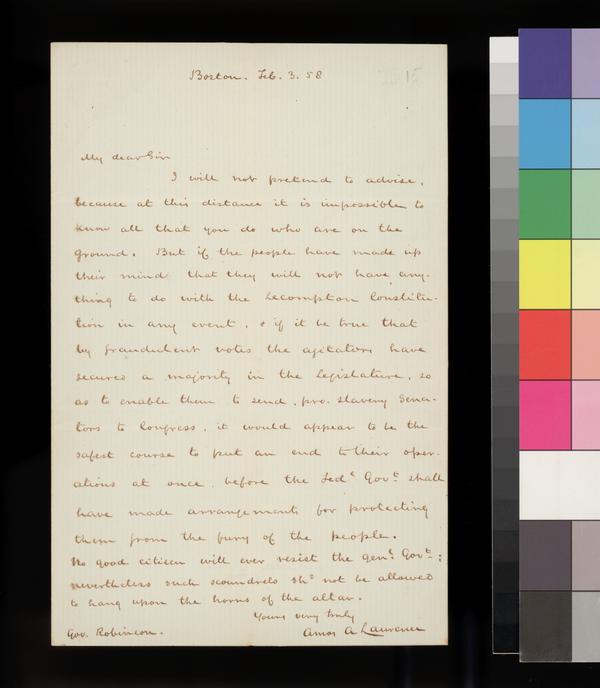 Boston. Feb. 3. 58
My dear Sir
I will not pretend to advise,
because at this distance it is impossible to
know all that you do who are on the
ground. But if the people have made up
their mind that they will not have any-
thing to do with the Lecompton Constitu-
tion in any event, & if it be true that
by fraudulent votes the agitators have
secured a majority in the Legislature, so
as to enable them to send pro-slavery Sena-
tors to Congress, it would appear to be the
safest course to put an end to their oper-
ations at once, before the Fedl Govt shall
have made arrangements for protecting
them from the fury of the people.
No good citizen will ever resist the genl Govt:
nevertheless such scoundrels shd not be allowed
to hang upon the horns of the altar.
Yours very truly
Gov. Robinson. Amos A Lawrence